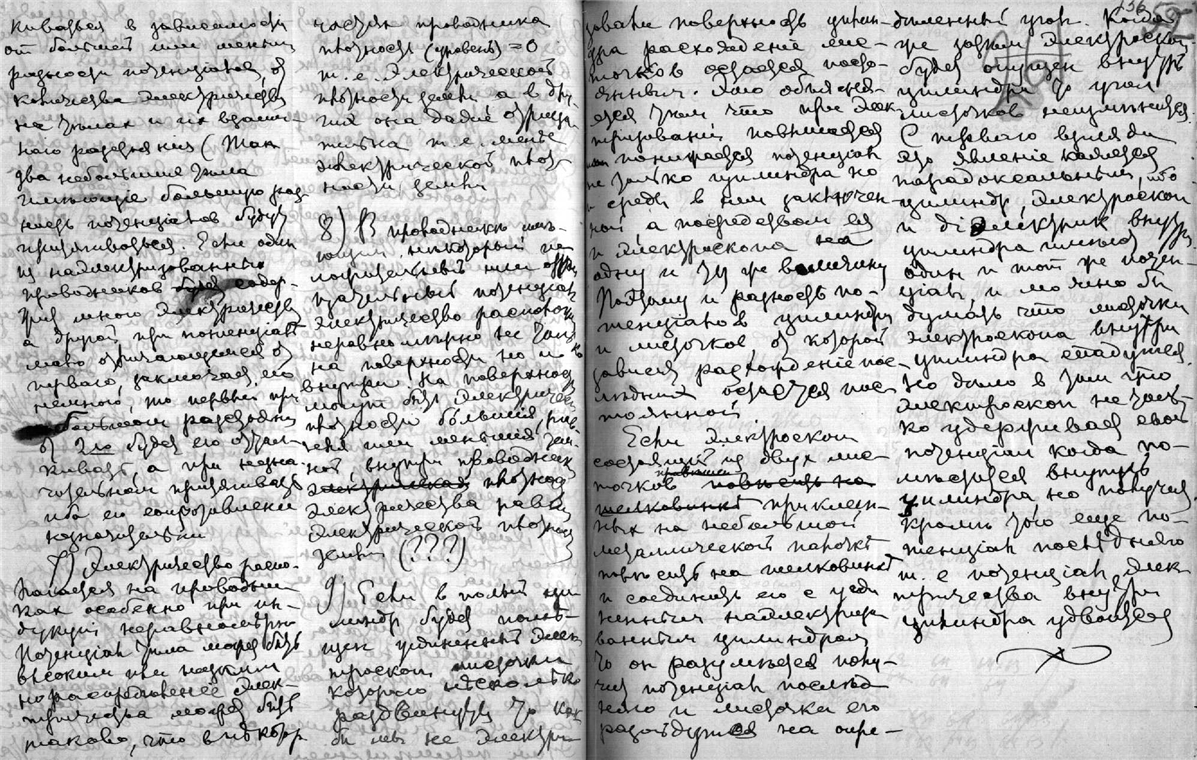 киваться в зависимости
от большей или меньшей
разности потенциалов, от
количества электричества
на телах и их взаим-
ного разстояния (Так
два небольшие тела
имеющие большую раз-
ность потенциалов будут
притягиваться. Если один
из наэлектризованных
проводников содер-
жит много электричества
а другой, при потенциале
мало отличающемся от
первого, заключает его
немного, то первый при
большом разстоянии
от 2го будет его оттал
кивать, а при незна-
чительном притягивать
ибо ея сопротивление
незначительны.
7) Электричество распо-
лагается на проводнике
как особенно при ин-
дукции неравномерно
Потенциал тела может быть
высоким или низким
но распределение элек-
тричества может быть
таково, что в некотор
частях проводника
плотность (уровень) = 0
т. е. электрической
плотности земли а в дру-
гих она даже отрица
тельна т. е. менее
электрической плот-
ности земли
8) В проводнике име-
ющим некоторый по-
ложительный или отри
цательный потенциал
электричество располож
неравномерно не только
на поверхности но и
внутри. На поверхнос
могут быть электричес
плотности большия, рав
ныя или меньшия, зем-
ной, внутри проводника
электрическая плотнос
электричества равна
электрической плотнос
земли (???)
9) Если в полый ци
линдр будет поме-
щен удиненный элек
троскоп листочки
котораго несколько
раздвинуты то как
бы мы не электри-
зовали поверхность цилин-
дра расхождение лис-
точков остается посто-
янным. Это объясня-
ется тем, что при элек
тризовании повышается
или понижается потенциал
не только цилиндра но
и среды в нем заключен
ной а посредством ея
и электроскопа на
одну и ту же величину
Поэтому и разность по-
тенциалов цилиндра
и листочков от которой
зависит расхождение пос-
ледних остается пос-
тоянной
Если электроскоп
состоящий из двух лис-
точков повесить на
шелковинке приклеен-
ных на небольшой
металлической палочке
повесить на шелковинке
и соединить его с уеди
ненным наэлектризо-
ванным цилиндром
то он разумеется полу-
чит потенциал послед-
него и листочки его
разойдутся на опре-
156
деленный угол. Когда
же затем электроскоп
будет опущен внутрь
цилиндра то угол
листочков не уменьшится
С первого взгляда
это явление кажется
парадоксальным, ибо
цилиндр, электроскоп
и діэлектрик внутри
цилиндра имеют
один и тот же потен-
циал, и можно бы
думать что листочки
электроскопа внутри
цилиндра спадутся.
Но дело в том что
электроскоп не толь-
ко удерживает свой
потенциал когда по-
мещается внутрь
цилиндра но получает
кроме того еще по-
тенциал последнего
т. е. потенциал элек
тричества внутри
цилиндра удвоится